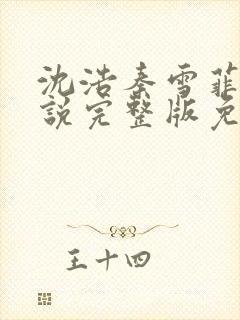 沈浩秦雪菲
说完整版免
王十四